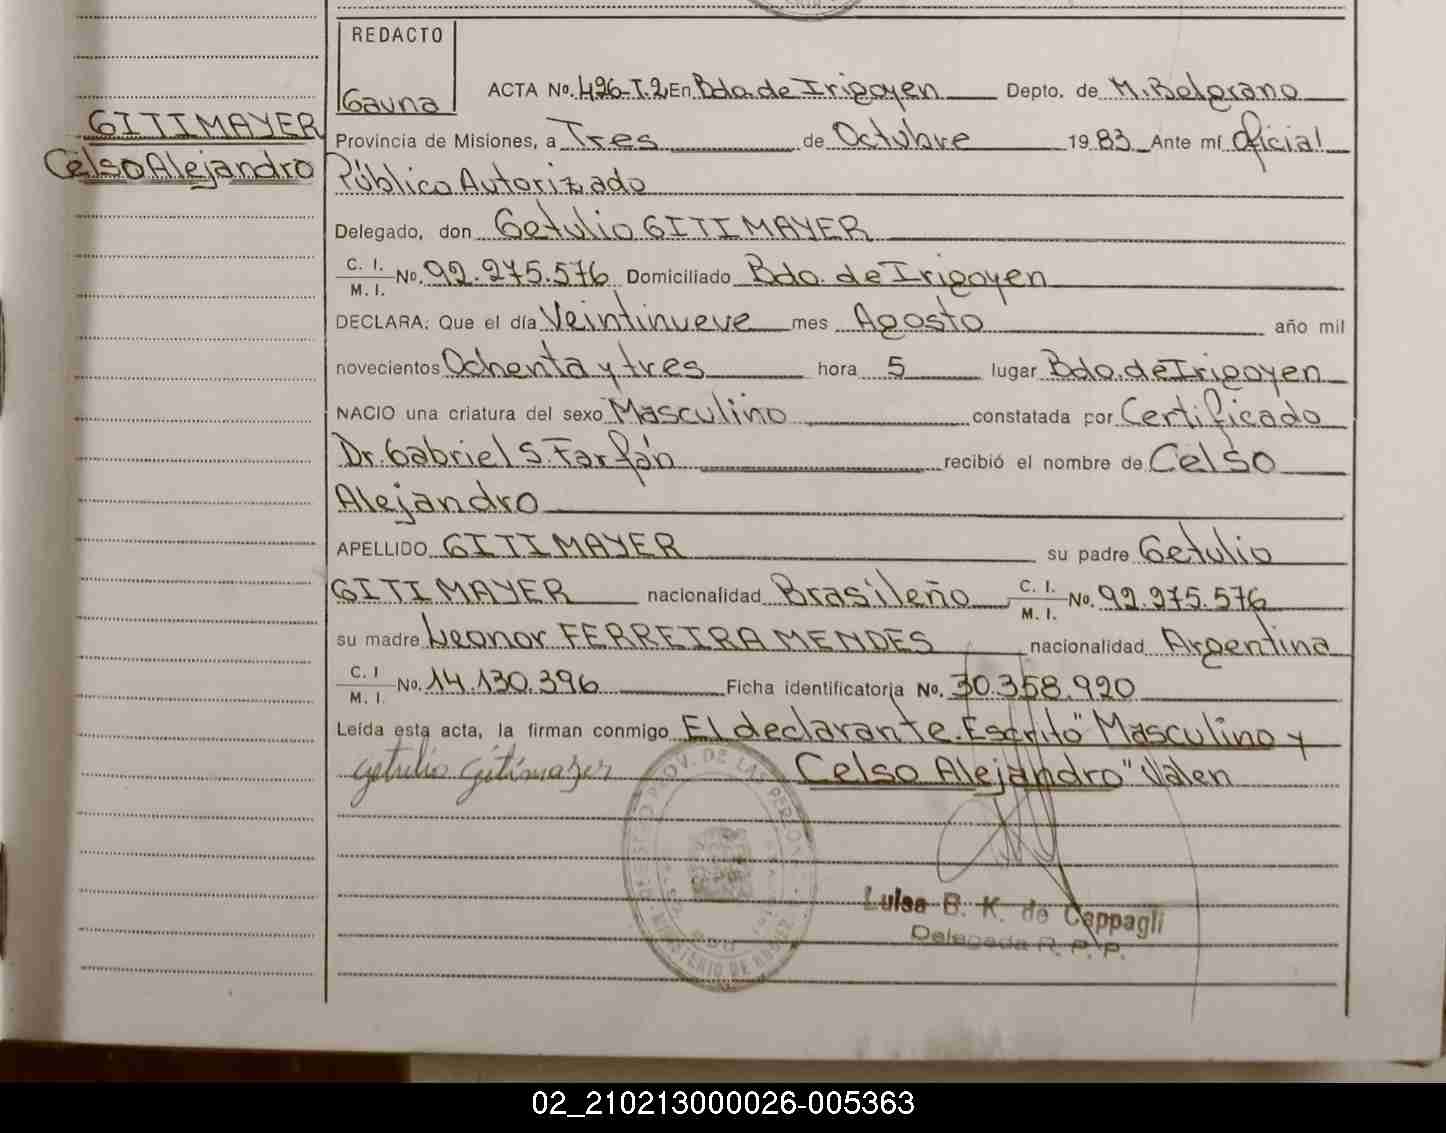 REDACTO
Gauna
GITIMAYER
Celso Alejandro
ACTA No. 426-T.2 En Bdo. de Irigoyen Depto. de M. Belgrano
Provincia de Misiones, a Tres de Octubre 1983 Ante mí Oficial
Público Autorizado
Delegado, don Getulio GITIMAYER
C. I. M. I. No. 92.275.576 Domiciliado Bdo. de Irigoyen
DECLARA: Que el día Veintinueve mes Agosto año mil
novecientos Ochenta y tres hora 5 lugar Bdo. de Irigoyen
NACIO una criatura del sexo Masculino constatada por Certificado
Dr. Gabriel S Farfán recibió el nombre de Celso
Alejandro
APELLIDO GITIMAYER su padre Getulio
GITIMAYER nacionalidad Brasileño C. I. M. I. No. 92.275.576
su madre Leonor FERREIRA MENDES nacionalidad Argentina
C. I M. I. No. 14.130.396 Ficha identificatoria No. 30.358.920
Leída esta acta, la firman conmigo El declarante. Escrito "Masculino y
Getulio Gitimayer Celso Alejandro" Valen
PROV. DE LAS PERSONAS
MINISTERIO DE
Luisa B. K. de Cappagli
Delegada R. P. P.
02_210213000026-005363